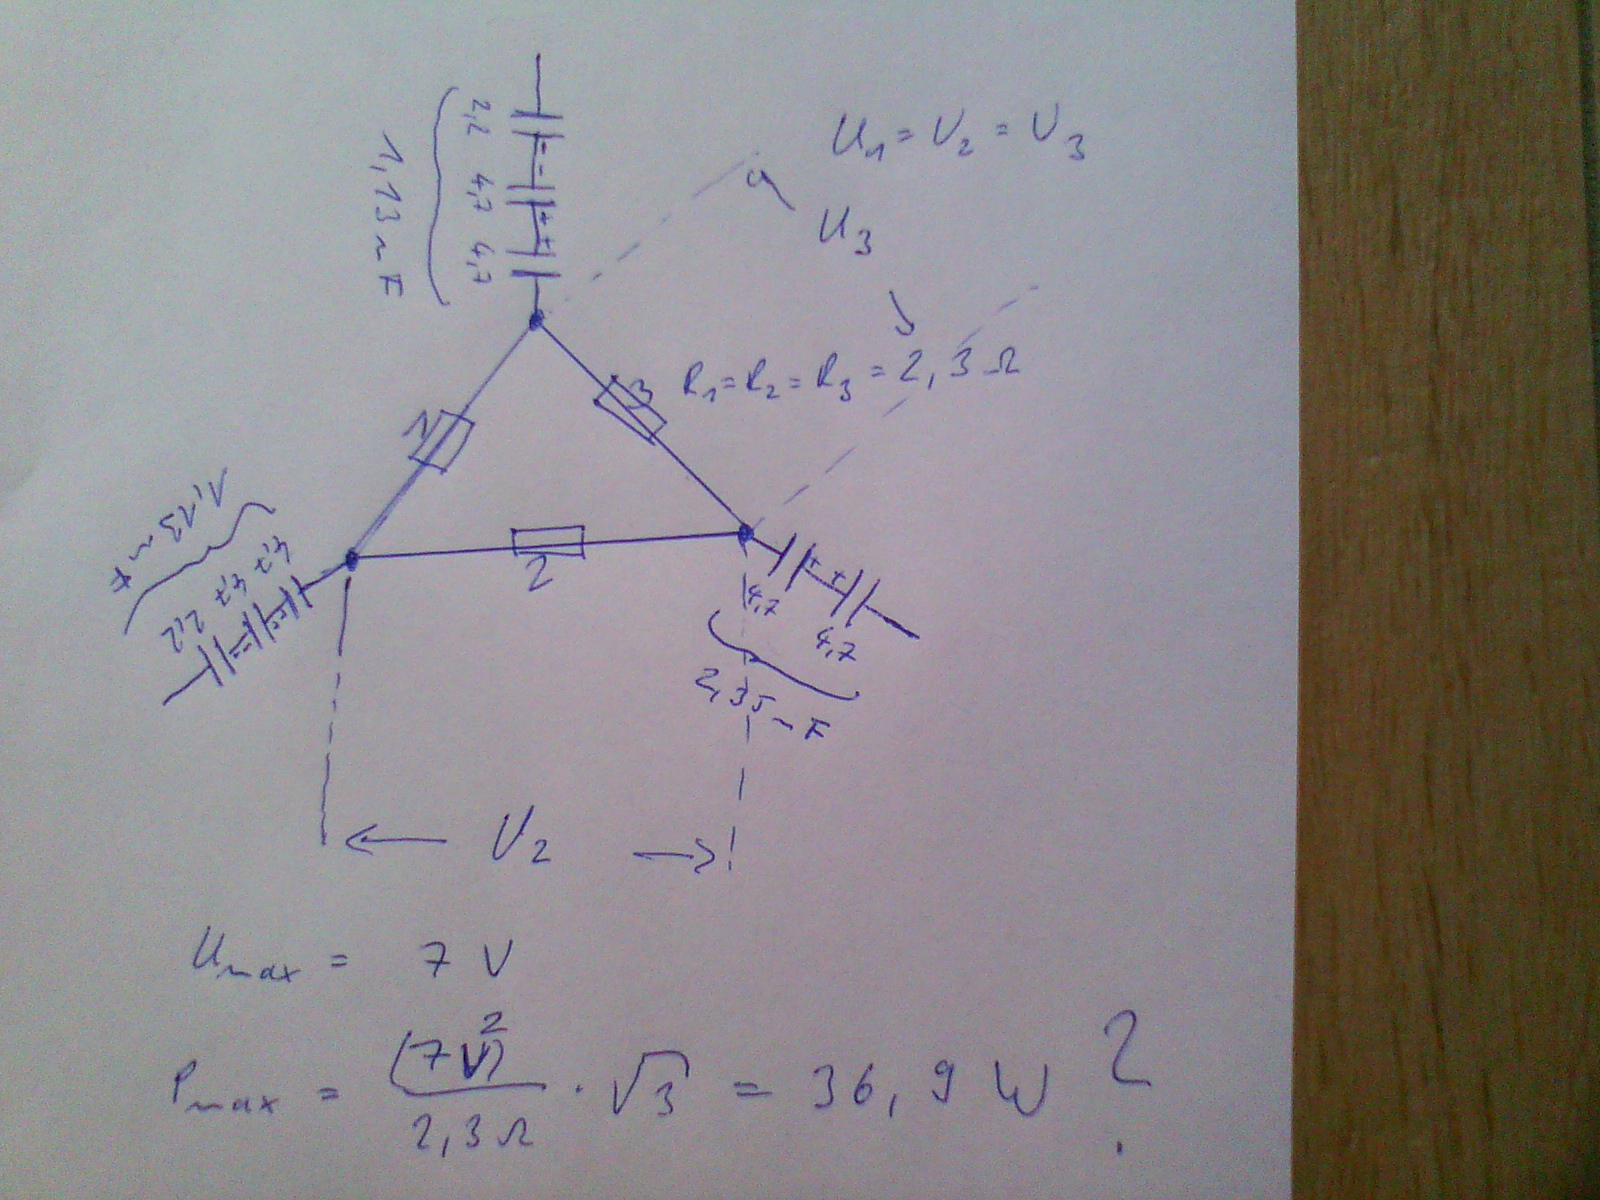 2,2 4,7 4,7
1,13 mF
U₁ = U₂ = U₃
U₃
R₁ = R₂ = R₃ = 2,3 Ω
1
3
2
1,13 mF
2,2 4,7 4,7
4,7
4,7
2,35 mF
U₂
Umax = 7 V
Pmax = (7V)² / 2,3 Ω · √3 = 36,9 W ?